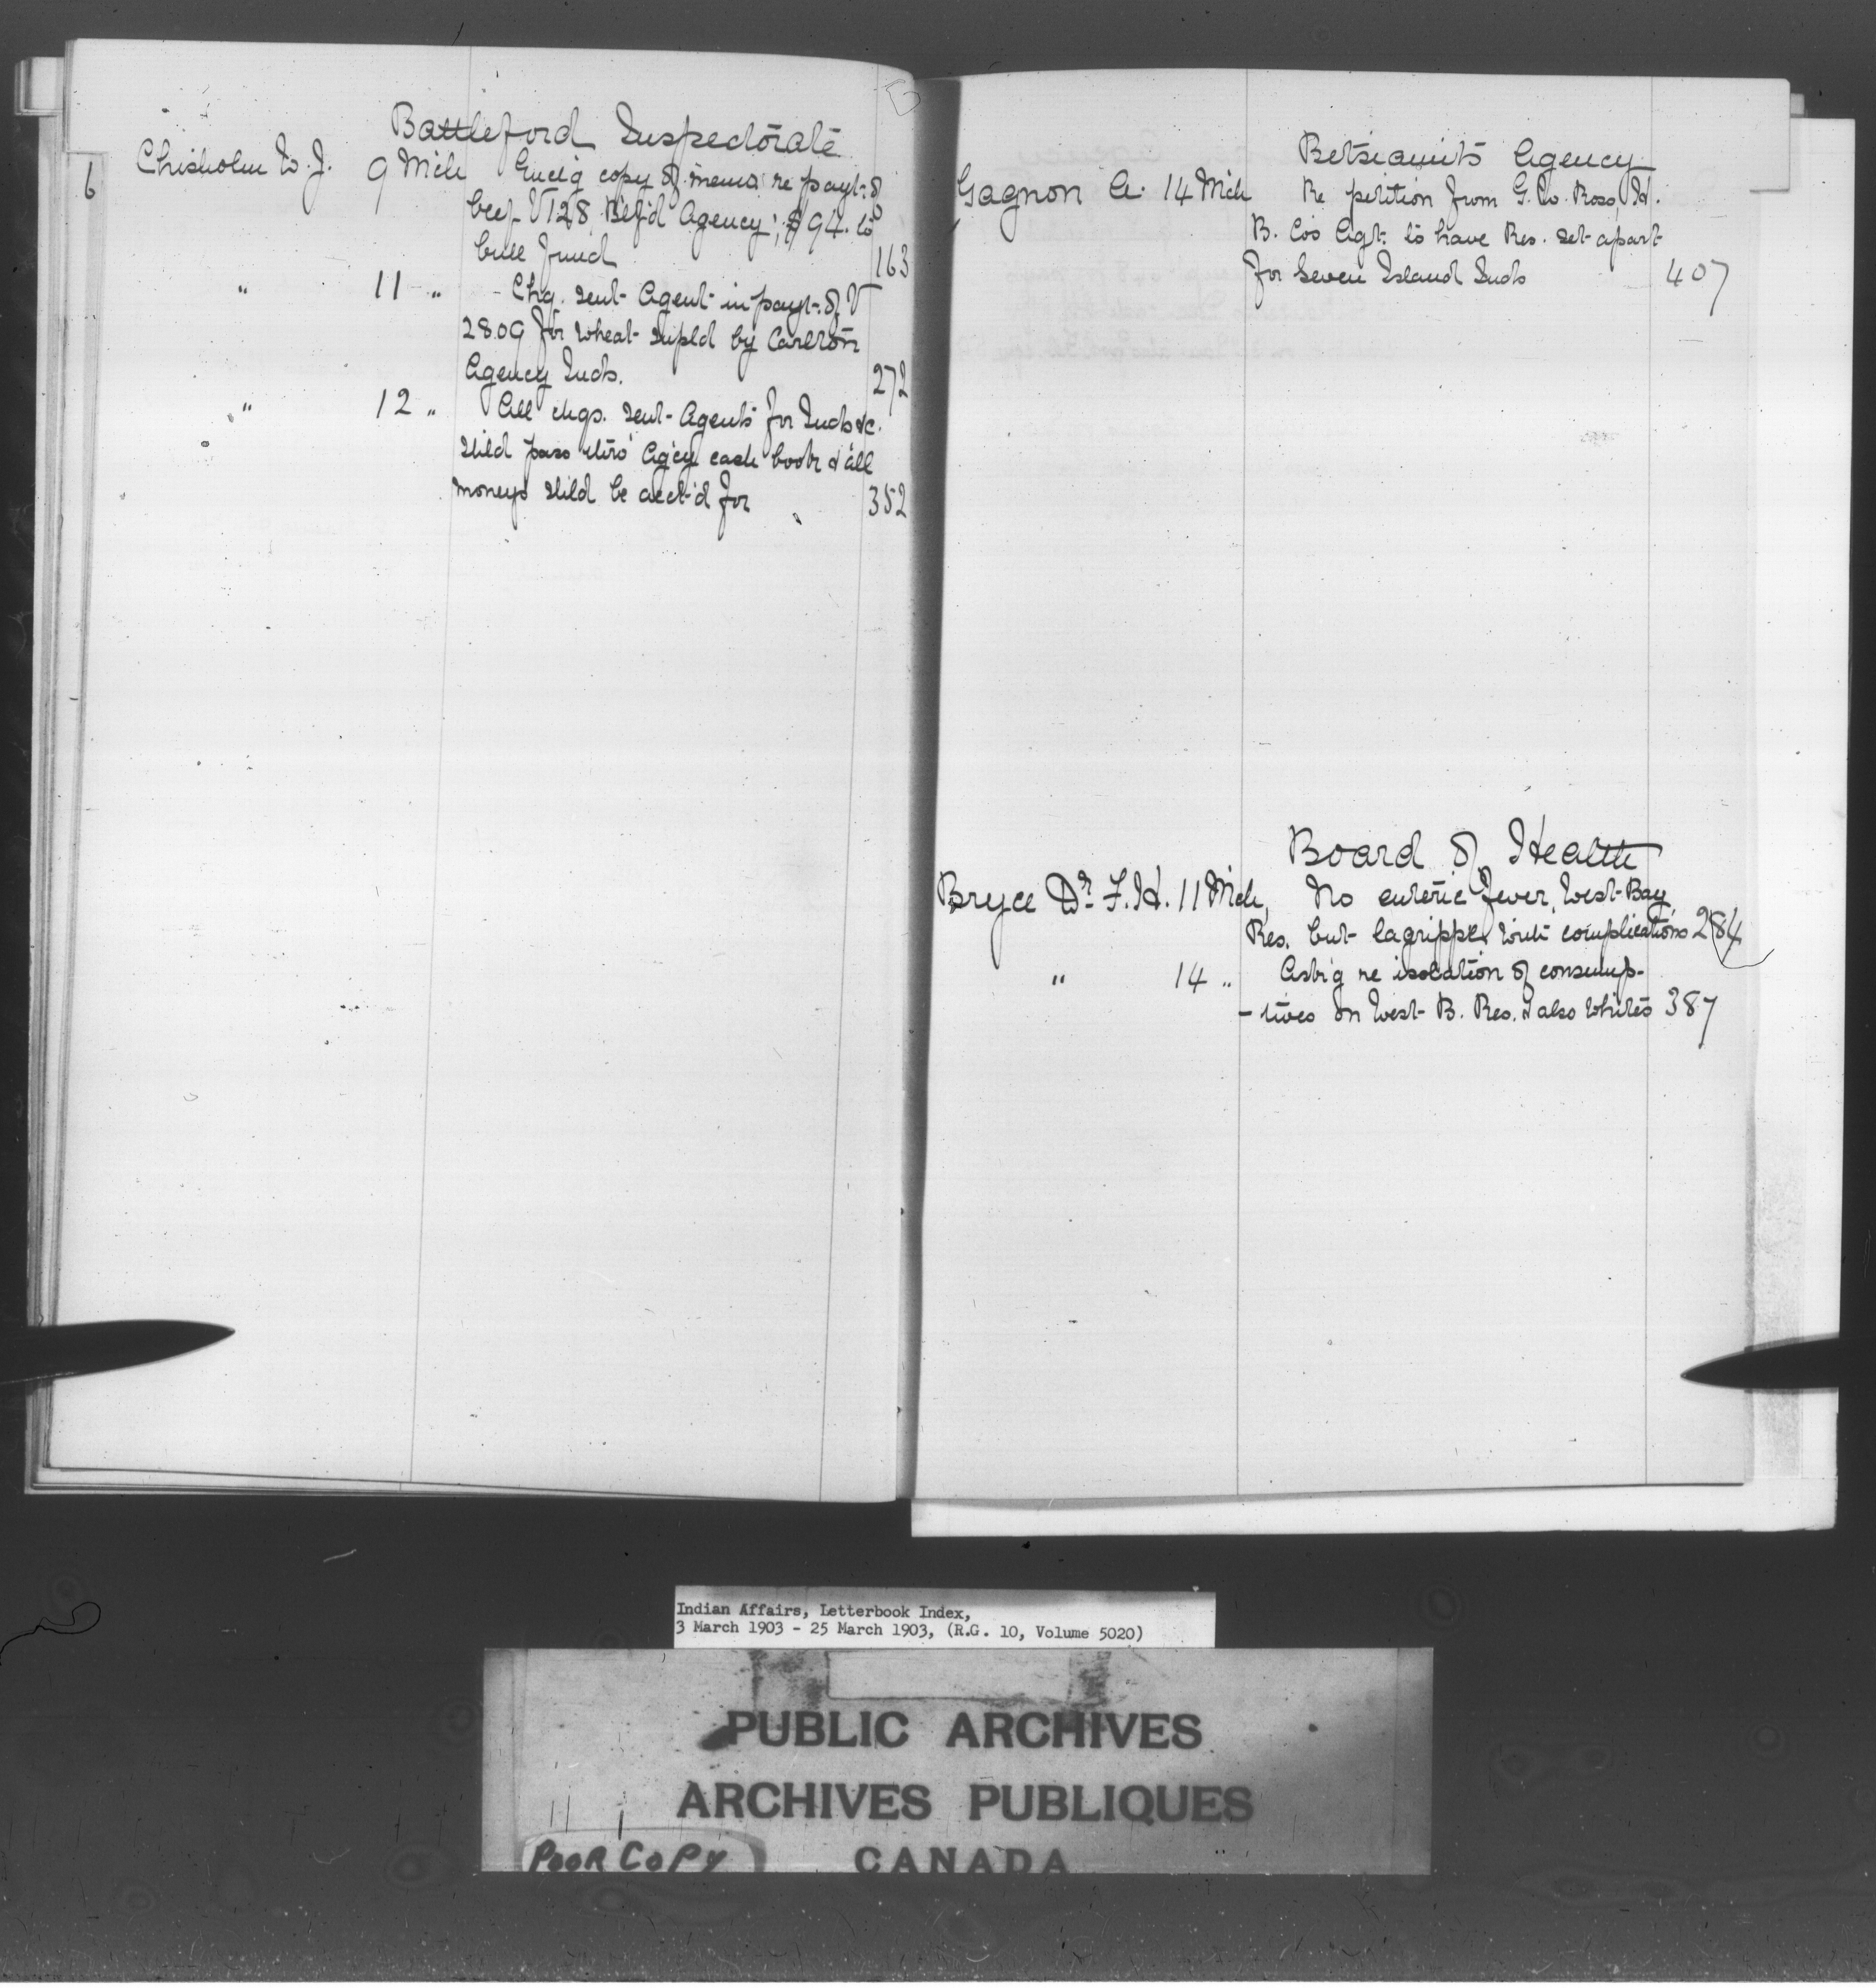 B
6
Battleford Inspectorate
Chisholm W. J. 9 Mch Encl'g copy of memo: re payt: of
beef V 128, Btlf'd Agency; $94. to
bull fund 163
" 11 " - Chq. sent Agent in payt: of V
2809 for wheat supld by Carlton
Agency Inds. 272
" 12 " All chqs. sent Agents for Inds &c.
shld pass thro' Ag'cy cash book & all
moneys shld be acct'd for 352
Betsiamits Agency
Gagnon A. 14 Mch Re petition from G. W. Ross, H.
B. Co's Agt. to have Res. set apart
for Seven Island Inds 407
Board of Health
Bryce Dr. F. H. 11 Mch, No enteric fever, West Bay
Res. but lagrippe with complications 284
" 14 " Ask'g re isolation of consump-
-tives on West B. Res. & also whites 387
Indian Affairs, Letterbook Index,
3 March 1903 - 25 March 1903, (R.G. 10, Volume 5020)
PUBLIC ARCHIVES
ARCHIVES PUBLIQUES
POOR COPY
CANADA